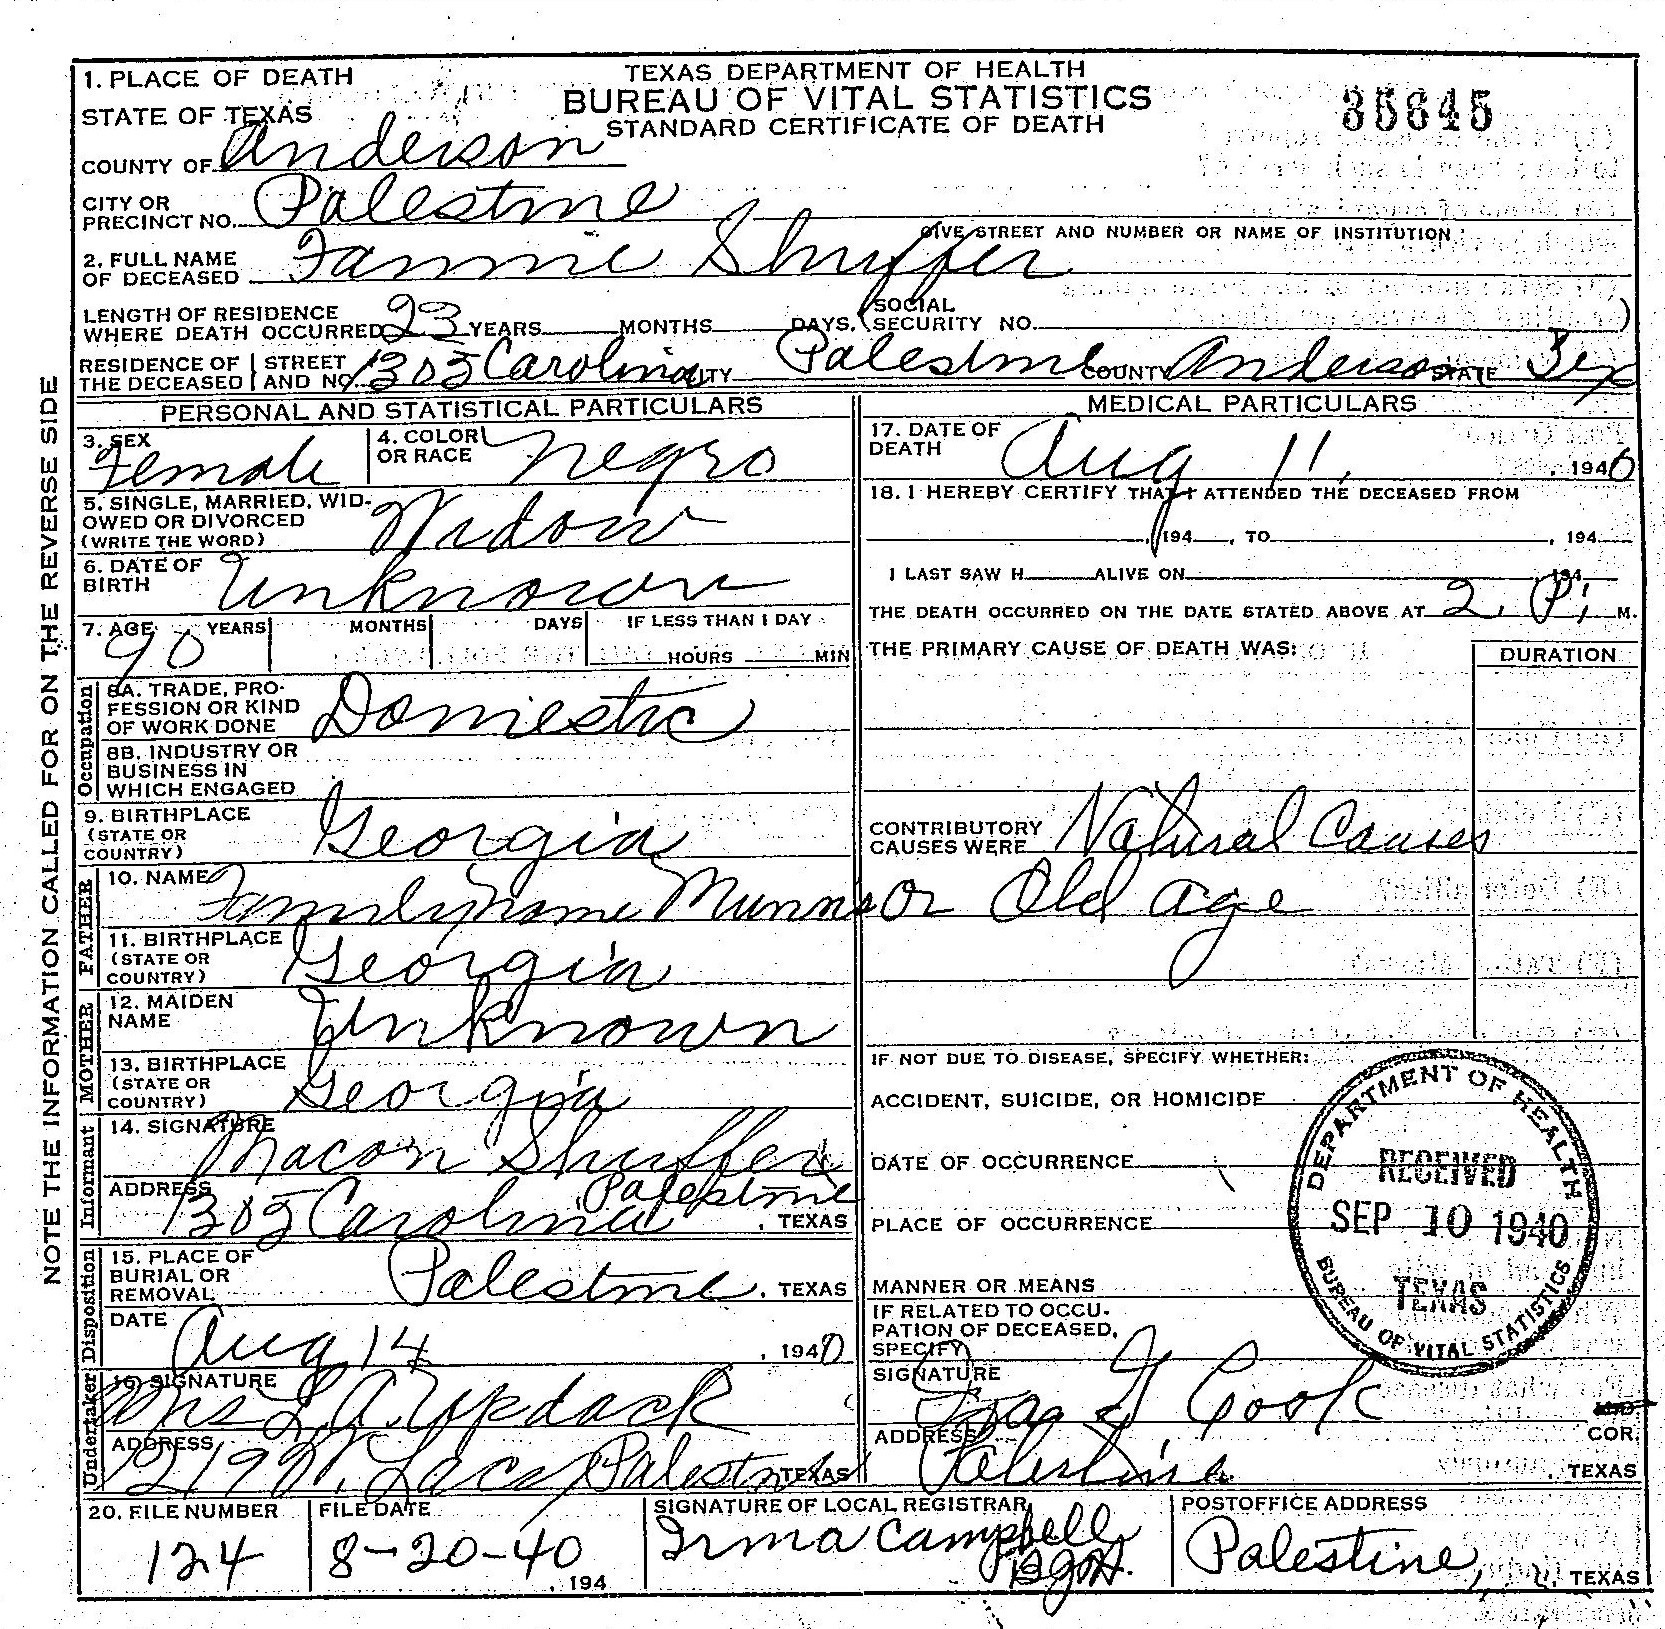 TEXAS DEPARTMENT OF HEALTH
BUREAU OF VITAL STATISTICS
STANDARD CERTIFICATE OF DEATH
35645
1. PLACE OF DEATH
STATE OF TEXAS
COUNTY OF Anderson
CITY OR PRECINCT NO. Palestine
GIVE STREET AND NUMBER OR NAME OF INSTITUTION
2. FULL NAME OF DECEASED Fannie Shuffer
LENGTH OF RESIDENCE WHERE DEATH OCCURRED 23 YEARS MONTHS DAYS. (SOCIAL SECURITY NO. )
RESIDENCE OF THE DECEASED STREET AND NO. 1305 Carolina CITY Palestine COUNTY Anderson STATE Tex
NOTE THE INFORMATION CALLED FOR ON THE REVERSE SIDE
PERSONAL AND STATISTICAL PARTICULARS
3. SEX Female
4. COLOR OR RACE Negro
5. SINGLE, MARRIED, WIDOWED OR DIVORCED (WRITE THE WORD) Widow
6. DATE OF BIRTH Unknown
7. AGE 90 YEARS MONTHS DAYS IF LESS THAN 1 DAY HOURS MIN
Occupation
8A. TRADE, PROFESSION OR KIND OF WORK DONE Domestic
8B. INDUSTRY OR BUSINESS IN WHICH ENGAGED
9. BIRTHPLACE (STATE OR COUNTRY) Georgia
FATHER
10. NAME Family Name Munns
11. BIRTHPLACE (STATE OR COUNTRY) Georgia
MOTHER
12. MAIDEN NAME Unknown
13. BIRTHPLACE (STATE OR COUNTRY) Georgia
Informant
14. SIGNATURE Macon Shuffer
ADDRESS 1305 Carolina Palestine, TEXAS
Disposition
15. PLACE OF BURIAL OR REMOVAL Palestine, TEXAS
DATE Aug 14, 1940
Undertaker
16. SIGNATURE Mrs L. A. Updack
ADDRESS Lacy Palestine TEXAS
MEDICAL PARTICULARS
17. DATE OF DEATH Aug 11, 1940
18. I HEREBY CERTIFY THAT I ATTENDED THE DECEASED FROM
, 194 , TO , 194
I LAST SAW H ALIVE ON 194
THE DEATH OCCURRED ON THE DATE STATED ABOVE AT 2. P. M.
THE PRIMARY CAUSE OF DEATH WAS:
DURATION
CONTRIBUTORY CAUSES WERE Natural Causes
or Old age
IF NOT DUE TO DISEASE, SPECIFY WHETHER:
ACCIDENT, SUICIDE, OR HOMICIDE
DATE OF OCCURRENCE
PLACE OF OCCURRENCE
MANNER OR MEANS
IF RELATED TO OCCUPATION OF DECEASED, SPECIFY
DEPARTMENT OF HEALTH
RECEIVED
SEP 10 1940
TEXAS
BUREAU OF VITAL STATISTICS
SIGNATURE Cook
COR.
ADDRESS Palestine, TEXAS
20. FILE NUMBER 124
FILE DATE 8-20-40, 194
SIGNATURE OF LOCAL REGISTRAR Irma Campbell
POSTOFFICE ADDRESS Palestine, TEXAS